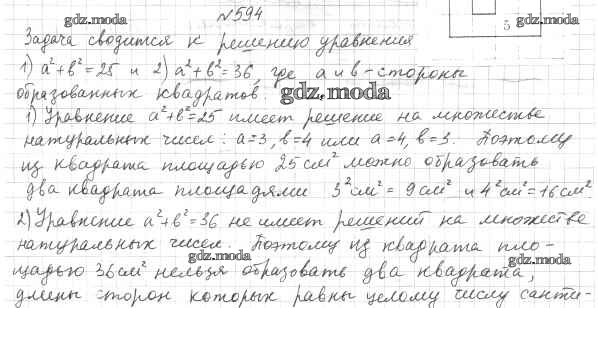 №594
gdz.moda
5 gdz.moda
Задача сводится к решению уравнения
1) a²+b²=25 и 2) a²+b²=36, где a и b - стороны
образованных квадратов. gdz.moda
1) Уравнение a²+b²=25 имеет решение на множестве
натуральных чисел: a=3, b=4 или a=4, b=3. Поэтому
из квадрата площадью 25 см² можно образовать
два квадрата площадями 3²см²= 9см² и 4²см²=16см².
2) Уравнение a²+b²=36 не имеет решений на множестве
натуральных чисел. Поэтому из квадрата пло-
gdz.moda
щадью 36см² нельзя образовать два квадрата,
gdz.moda
длины сторон которых равны целому числу санти-